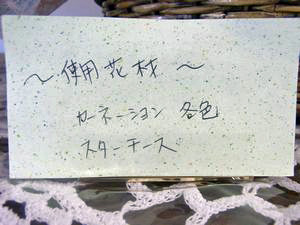 ～使用花材～
カーネーション 各色
スターチース